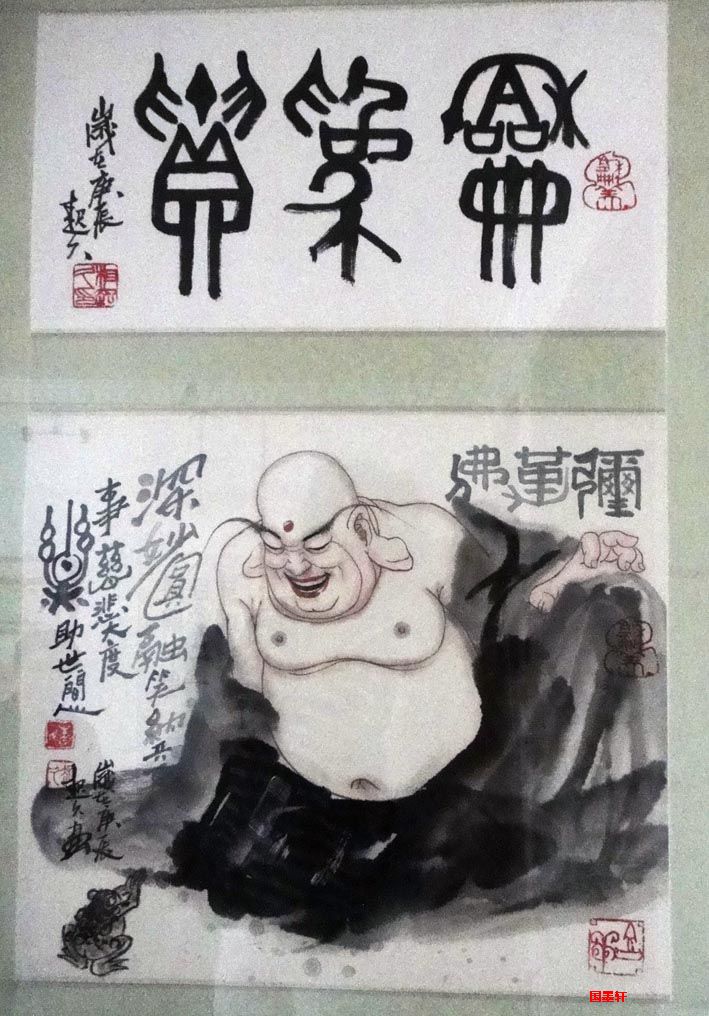 龢為貴
歲在庚辰
彌勒佛
深妙圓融笑納
事慈悲大度
樂助世間
歲在庚辰
国墨轩